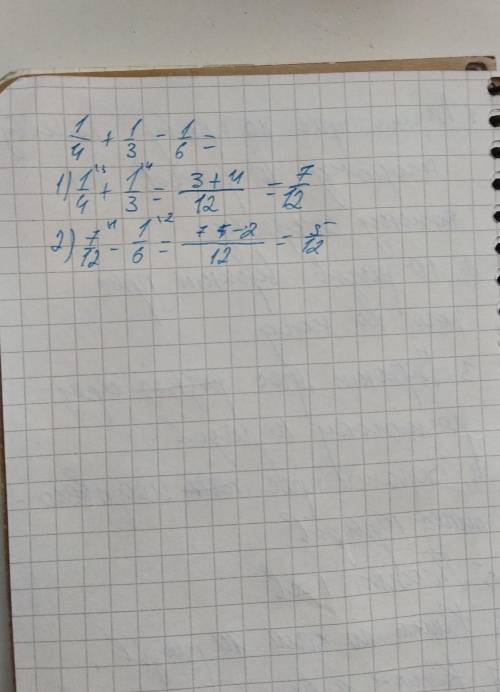 1/4 + 1/3 - 1/6 =
1) 1/4 \3 + 1/3 \4 = 3+4/12 = 7/12
2) 7/12 \1 - 1/6 \2 = 7-2/12 = 5/12